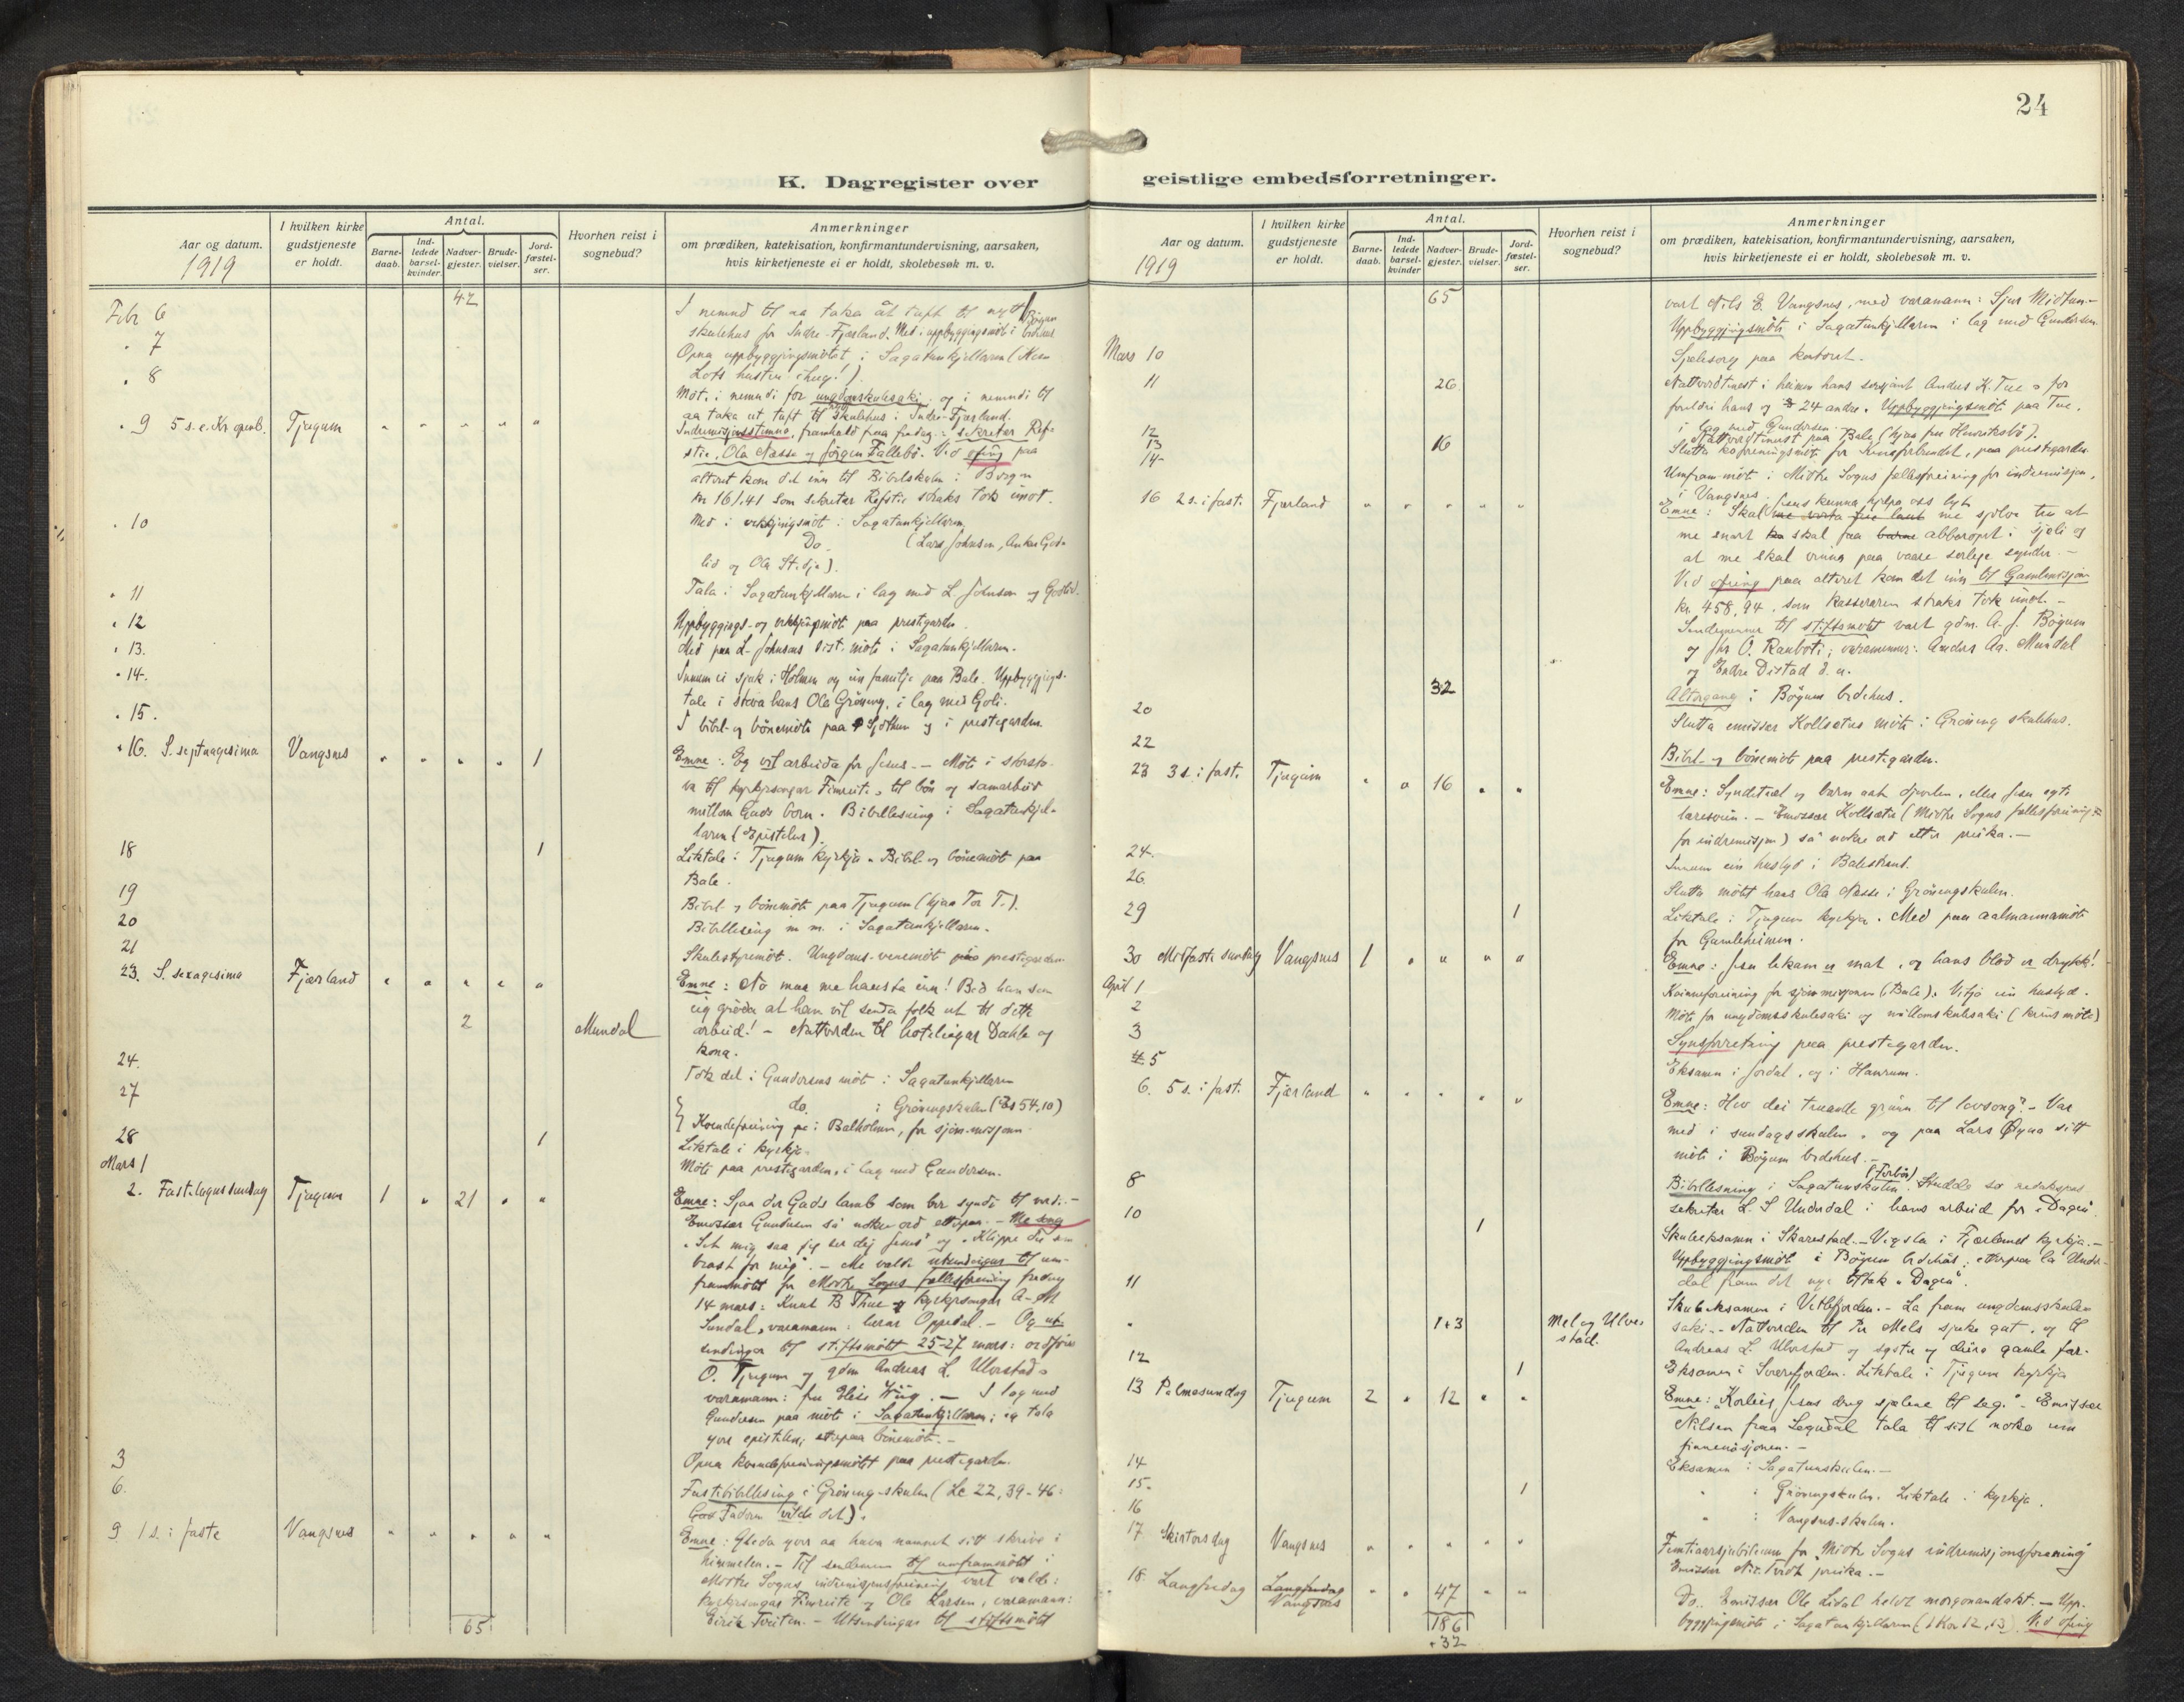 24
K. Dagregister over
geistlige embedsforretninger.
Aar og datum.
1919
I hvilken kirke
gudstjeneste
er holdt.
Antal.
Barne-
daab.
Ind-
ledede
barsel-
kvinder.
Nadver-
gjester.
Brude-
vielser.
Jord-
fæstel-
ser.
Hvorhen reist i
sognebud?
Anmerkninger
om prædiken, katekisation, konfirmantundervisning, aarsaken,
hvis kirketjeneste ei er holdt, skolebesøk m. v.
42
Febr 6 I nemnd til aa taka ut tuft til nytt
skulehus for Indre-Fjærland. Med i uppbyggingsmøt i
" 7 Opna uppbyggjingsmøtet i Sagatunkjellaren
" 8
Møt. i nemndi for ungdomskulesaki og i nemndi til
aa taka ut tuft til skulehus i Indre-Fjærland.
" 9 5 s. e. Kr openb. Tjugum " " " " "
Indremisjonsstemna, framhald fraa fredag: sekretær Ref-
stie, Ola Næsse og Jörgen Fallebö. Ved ofring paa
alteret kom det inn til Bibelskulen i Bergen
kr 161.41 som sekretær Refstie straks tok imot.
" 10 Med i vekkjingsmøt i Sagatunkjellaren
Do (Lars Johnsen, Anker God-
lid og Ola Stedje).
" 11 Tala i Sagatunkjellaren i lag med L. Johnsen og Godlid.
" 12 Uppbyggings- og vekkjingsmøt paa prestegarden.
" 13. Med paa L. Johnsens sist. møte i Sagatunkjellaren.
" 14. Innum ei sjuk i Holmen og ein familje paa Bale. Uppbyggjings-
tale i stova hans Ola Gröneng, i lag med
" 15. I bibel- og bönemöte paa og i prestegarden.
" 16. S. septuagesima Vangsnes " " " " 1
Emne: Eg vil arbeida for Jesus. – Møt i
til kyrkjesongar Fimreite, til bön og samarbeid
millom Guds born. Bibellesning i Sagatunkjel-
laren (Epistelen).
18 1 Liktale i Tjugum kyrkja. Bibel- og bönemøt paa
Bale.
19 Bibel- og bönemöte paa Tjugum (hjaa Tor T.).
20 Bibellesing m m. i Sagatunkjellaren.
21 Skulestyremøt. Ungdoms-venemøt paa prestegarden
23. S. sexagesima Fjærland " " " " "
Emne: No maa me hausta inn! Bed han som
eig gröda at han vil senda folk ut til dette
2 Mundal arbeid! – Nattverden til hoteleigar Dahle og
kona.
24. Tok del i Gundersens møt i Sagatunkjellaren
27 do. i Gröningskulen (Es 54,10)
Kvendeforeining i Balholmen, for sjömannsmisjonen
28 1 Liktale i kyrkja.
Mars 1 Möte paa prestegarden, i lag med Gundersen.
2. Fastelagssundag Tjugum 1 " 21 " "
Emne: Sjaa der Guds lamb som ber syndi til verdi. –
Emissær Gundersen sa nokre ord etterpaa. – Me song
"Let mig saa jeg ser dig Jesus" og "Klippe du som
brast for mig". – Me valde utsendingar til um-
frammøtet for Midtre Sogns fellesforeining fredag
14 mars: Knut B Thue og kyrkjesongar A. M
Sundal, varamann: lærar Oppedal. – Og ut-
sendingar til stiftsmøtet 25-27 mars: ordförar
O. Tjugum og gdm Andreas L. Ulvestad,
varamann: fru Elise Wiig. – I lag med
Gundersen paa møte i Sagatunkjellaren; eg tala
yver epistelen; etterpaa bönemöt. –
3 Opna kvendeforeningsmøtet paa prestegarden.
6. Fastebibellesing i Gröning-skulen (Lc 22, 39-46:
Faderen vilde det).
9 1 s. i faste Vangsnes " " " " "
Emne: Gleda yver aa hava namnet sitt skrive i
himmelen. – Til sendemenn til umframmötet i
Midtre Sogns indremisjonsforeining vart valde:
kyrkjesongar Fimreite og Ole Larsen, varamann:
Eirik Tveiten. – Utsendingar til stiftsmøtet
65
Aar og datum.
1919
I hvilken kirke
gudstjeneste
er holdt.
Antal.
Barne-
daab.
Ind-
ledede
barsel-
kvinder
Nadver-
gjester.
Brude-
vielser.
Jord-
fæstel-
ser.
Hvorhen reist i
sognebud?
Anmerkninger
om prædiken, katekisation, konfirmantundervisning, aarsaken,
hvis kirketjeneste ei er holdt, skolebesøk m. v.
65 vart Nils E. Vangsnes, med varamann: Sjur Midtun –
Uppbyggjingsmöte i Sagatunkjellaren i lag med Gundersen.
Mars 10 Sjelesorg paa kontoret.
11 26 Nattverdtenest i heimen hans sersjant Anders K. Tue, for
foreldri hans og 24 andre. Uppbyggjingsmöte paa Tue,
i lag med Gundersen.
12 16 Nattverdtenest paa Bale (hjaa fru Henriksbö).
13 Slutta paa prestegarden
14 Umframmöt i Midtre Sogns fellesforeining for indremisjon,
i Vangsnes.
16 2 s. i fast. Fjærland " " " " "
Emne: Skal Jesus kunna hjelpa oss lyt me sjölve tru at
me snart skal faa abbor i sjeli og
at me skal vinna paa vaare serlege synder. –
Ved ofring paa alteret kom det inn til Gamlemisjon
kr. 458,94, som kasseraren straks tok imot. –
Sendemenner til stiftsmøtet vart gdm. A. J. Bøgum
og O. Rauboti; varamenner: Anders Aa. Mundal
og Endre Distad d. u.
32 Altergang i Bøyum bedehus.
20 Slutta emissær Kollsetes møte i Gröneng skulehus.
22 Bibel- og bönemøt paa prestegarden.
23 3 s. i fast. Tjugum " " 16 " "
Emne: Syndetræl og barn aat djevelen, eller Jesu egte
læresvein. – Emissær Kollsete (Midtre Sogns fellesforeining
for indremisjon) sa nokre ord etter preika. –
24. Innum ein huslyd i Balestrand.
26. Slutta møtet hans Ola Næsse i Gröningskulen.
29 1 Liktale i Tjugum kyrkja. Med paa aalmannamöte
for Gamleheimen.
30 Midfaste sundag Vangsnes 1 " " " "
Emne: Jesu lekam er mat, og hans blod er drykk!
April 1 Kvinneforeining for sjömannsmisjonen (i Bale). Vitja ein huslyd.
2 Möte for ungdomsskulesaki og millomskulesaki (krins möte)
3 Synsforretning paa prestegarden.
5 Eksamen i Jordal, og i Hamrum.
6. 5 s. i fast. Fjærland " " " " "
Emne: Hev dei truande grunn til lovsong? – Var
med i sundagsskulen, og paa Lars Øyna sitt
möte i Bøyum bedehus. –
8 Bibellesning i Sagatunskulen. Studde so redaksjons
10 sekretær L. S Underdal i hans arbeid for "Dagen".
1 Skuleeksamen i Skarestad. – Vigsla i Fjærland kyrkja. –
Uppbyggjingsmöt i Bøyum bedehus; etterpaa la Under-
dal fram det nye tiltak "Dagen".
11 Skuleeksamen i Vetlefjorden. – La fram ungdomsskule-
saki. – Nattverden til Per Mels sjuke gut, og til
" 1+3 Mel og Ulve-
stad.
Andreas L. Ulvestad og syster og deira gamle far.
12 1 Eksamen i Sværefjorden. Liktale i Tjugum kyrkja
13 Palmesundag Tjugum 2 " 12 " "
Emne: "Korleis Jesus dreg sjelene til seg." – Emissær
Nilsen fraa Sogndal tala til sist noko um
finnemisjonen. –
14 Eksamen i Sagatunskulen. –
15. 1 " i Gröningskulen. Liktale i kyrkja.
16 " i Vangsnes-skulen.
17 Skirtorsdag Vangsnes " " " " "
Femtiaarsjubileum for "Midtre Sogns indremisjonsforening"
Emissær Nils Tvedt preika. –
18. Langfredag Langfredag Vangsnes " " 47 " "
Do. Emissær Ole Lidal heldt morgonandakt. – Upp-
byggjingsmöte i Sagatunkjellaren (1 Kor 12, 13). Ved ofring
186
+32